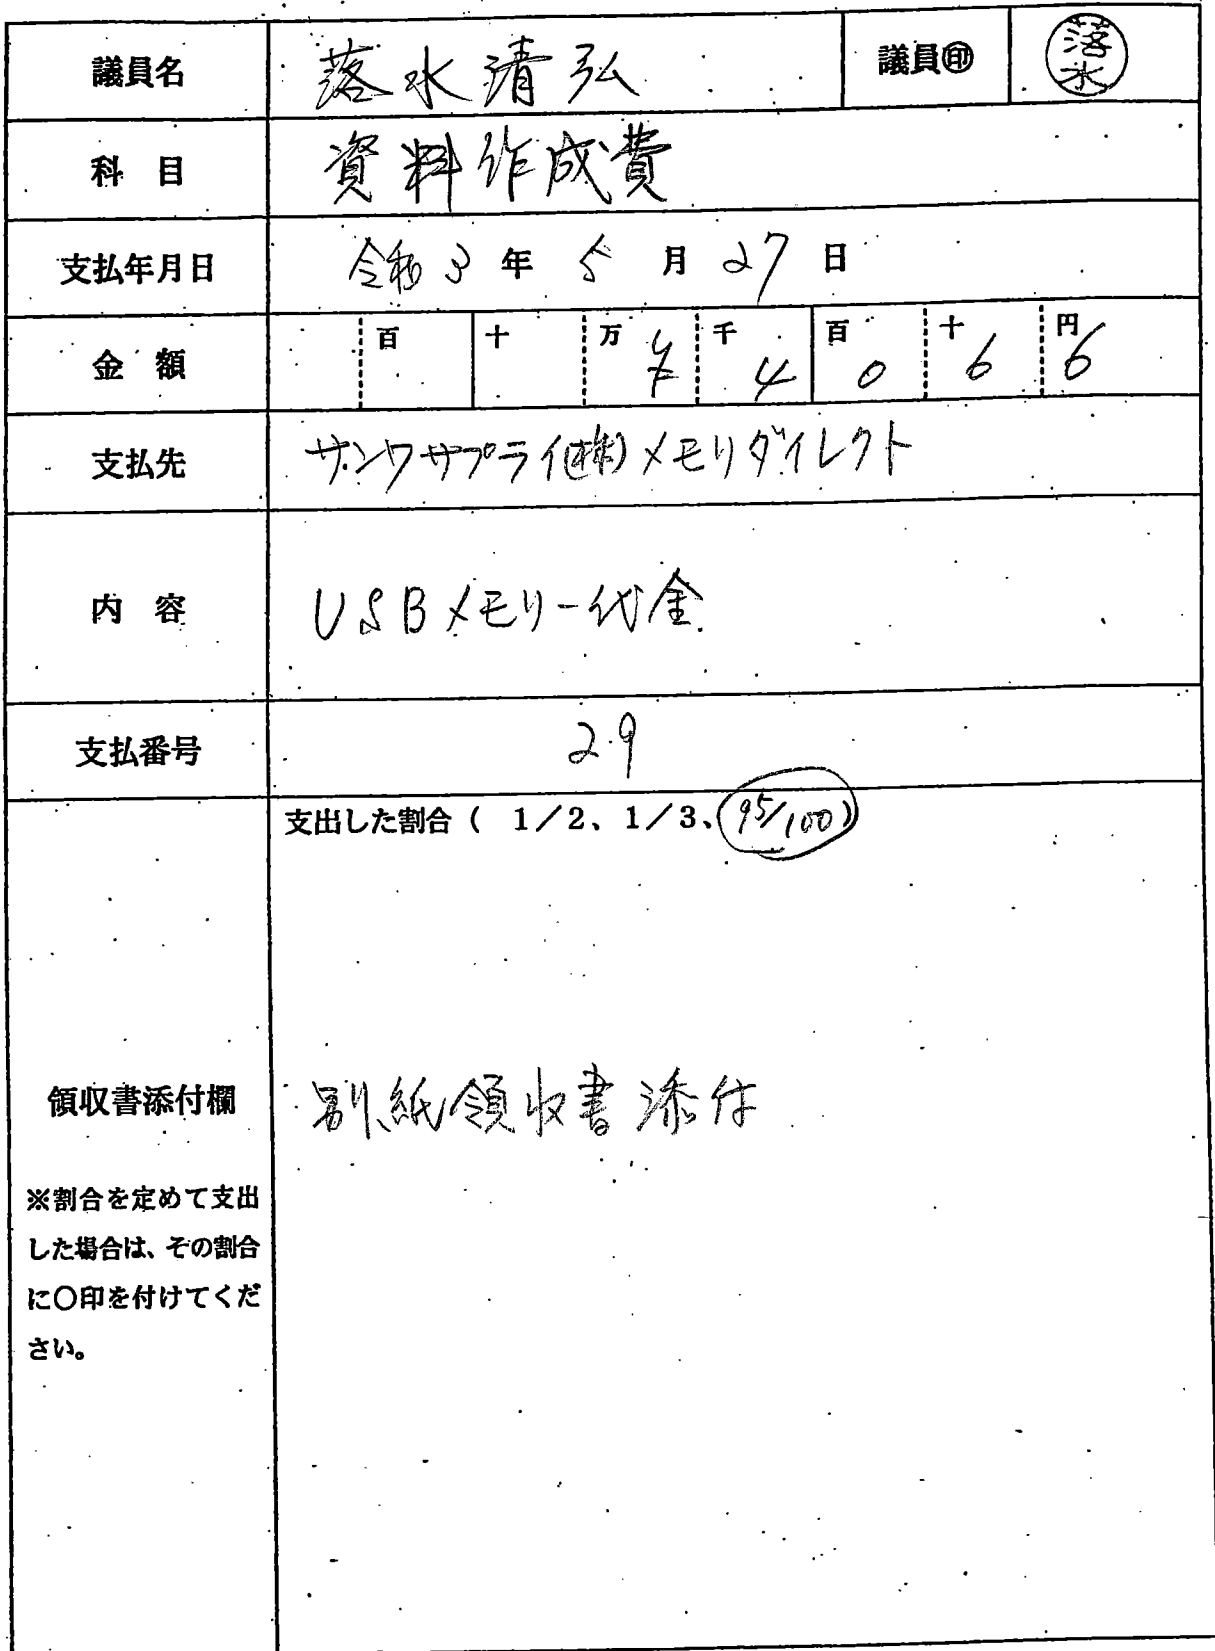 議員名 落水清弘 議員㊞ 落水
科 目 資料作成費
支払年月日 令和 3 年 5 月 27 日
金 額 百 十 万 ¥ 千 4 百 0 十 6 円 6
支払先 サンワサプライ(株)メモリダイレクト
内 容 USBメモリー代金
支払番号 29
支出した割合( 1/2、1/3、95/100)
領収書添付欄 別紙領収書添付
※割合を定めて支出
した場合は、その割合
に○印を付けてくだ
さい。